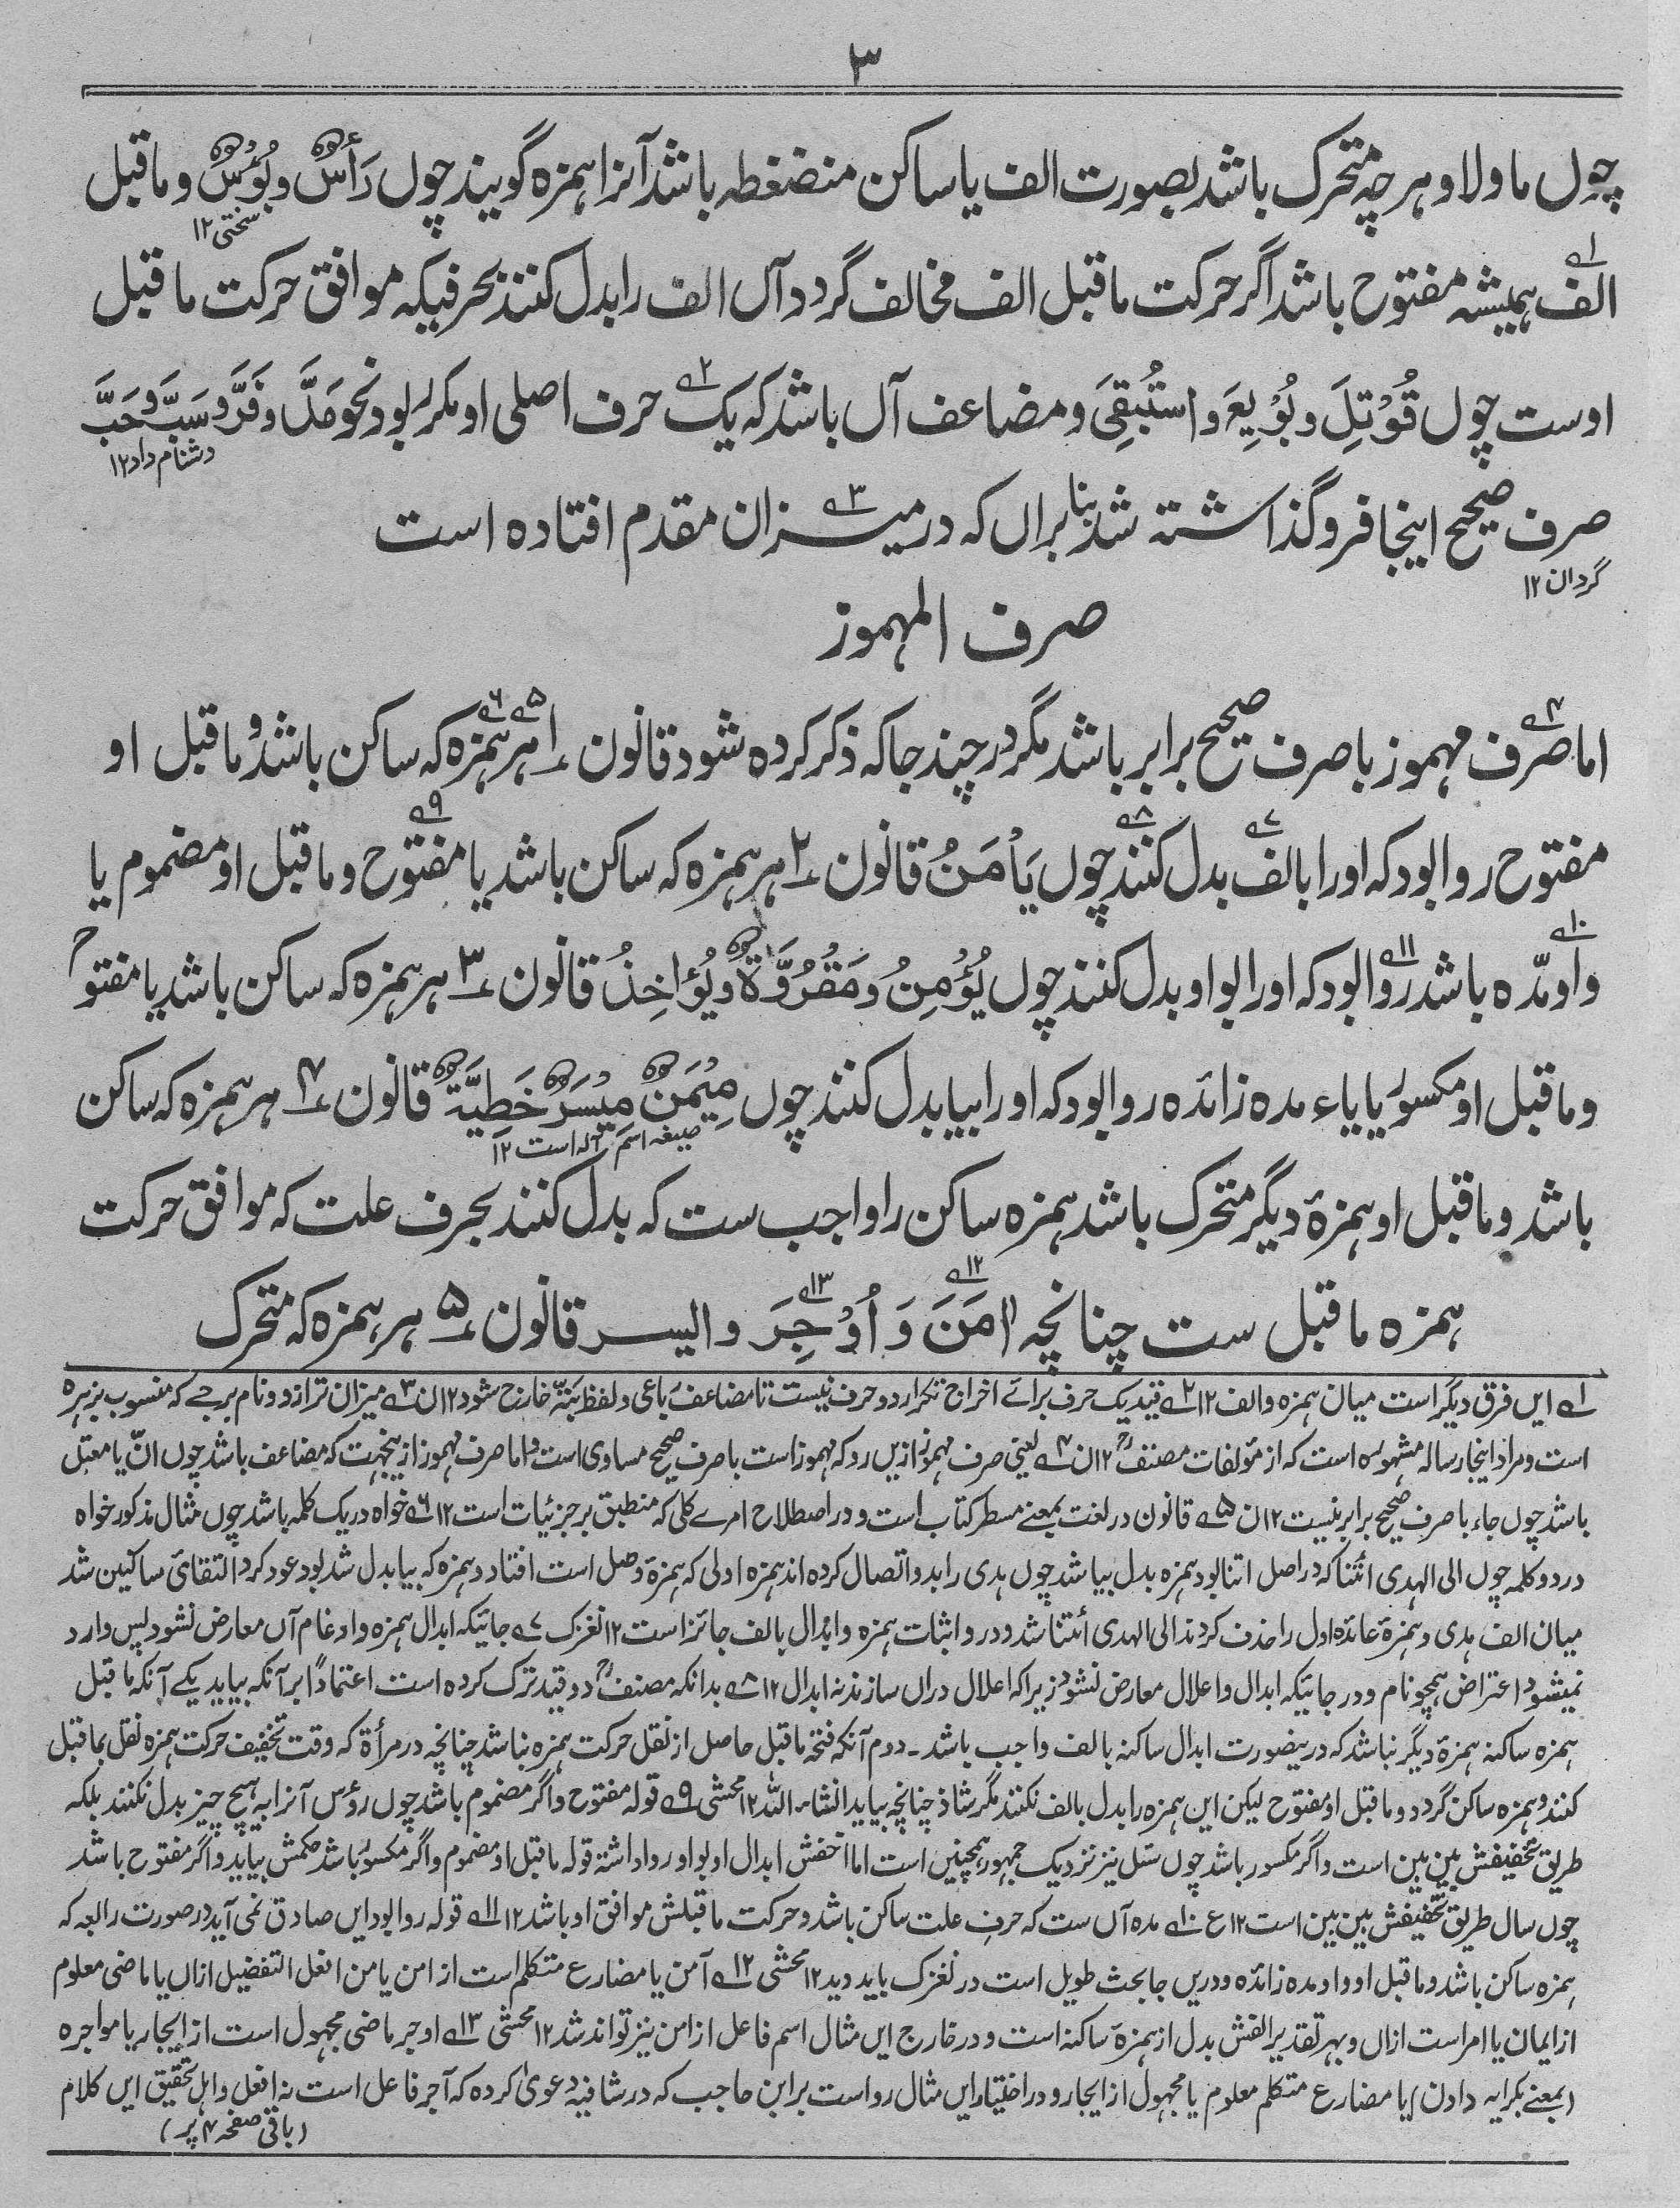 ۳
چوں ما ولا و ہر چہ متحرک باشد بصورت الف یا ساکن منضغطہ باشد آنرا ہمزہ گویند چوں رَأْسٌ و بُوْسٌ و ما قبل
سختی ۱۲
الف ۱؎ ہمیشہ مفتوح باشد اگر حرکت ما قبل الف مخالف گردد آں الف را بدل کنند بحرفیکہ موافق حرکت ما قبل
اوست چوں قُوْتِلَ و بُوْیِعَ و اسْتُبْقِیَ و مضاعف آں باشد کہ یک ۲؎ حرف اصلی او مکرر بود نحو مَدَّ و فَرَّ و سَبَّ و حَبَّ
دشنام داد ۱۲
صرف صحیح اینجا فروگذاشتہ شد بنا براں کہ در میزان ۳؎ مقدم افتادہ است
گردان ۱۲
صرف المہموز
اما صرف ۴؎ مہموز با صرف صحیح برابر باشد مگر در چند جا کہ ذکر کردہ شود قانون ۱ ۵؎ ہر ہمزہ ۶؎ کہ ساکن باشد و ما قبل او
مفتوح روا بود کہ او را بالف ۷؎ بدل کنند ۸؎ چوں یَأْمَنُ قانون ۲ ہر ہمزہ کہ ساکن باشد یا مفتوح ۹؎ و ما قبل او مضموم یا
واو مدّہ ۱۰؎ باشد روا ۱۱؎ بود کہ او را بواو بدل کنند چوں یُؤْمِنُ و مَقْرُوَّةٌ و یُؤَاخِذُ قانون ۳ ہر ہمزہ کہ ساکن باشد یا مفتوح
و ما قبل او مکسور یا یاء مدہ زائدہ روا بود کہ او را بیا بدل کنند چوں مِیْمَنٌ مِیْسَرٌ خَطِیَّةٌ قانون ۴ ہر ہمزہ کہ ساکن
صیغہ اسم آلہ است ۱۲
باشد و ما قبل او ہمزۂ دیگر متحرک باشد ہمزہ ساکن را واجب ست کہ بدل کنند بحرف علت کہ موافق حرکت
ہمزہ ما قبل ست چنانچہ اٰمَنَ ۱۲؎ وَ اُوْجِرَ ۱۳؎ و ایسر قانون ۵ ہر ہمزہ کہ متحرک
۱؎ ایں فرق دیگر است میان ہمزہ و الف ۱۲ ۲؎ قید یک حرف برائے اخراج تکرار دو حرف نیست تا مضاعف رباعی و لفظ بَبَّۃ خارج شود ۱۲ ن ۳؎ میزان ترازو و نام برجے کہ منسوب بزہرہ
است و مراد اینجا رسالہ مشہورہ است کہ از مؤلفات مصنفؒ ۱۲ ن ۴؎ یعنی صرف مہموز ازیں رو کہ مہموز است با صرف صحیح مساوی است و اما صرف مہموز ازینجہت کہ مضاعف باشد چوں انّ یا معتل
باشد چوں جاء با صرف صحیح برابر نیست ۱۲ ن ۵؎ قانون در لغت بمعنے مسطر کتاب است و در اصطلاح امرے کلی کہ منطبق بر جزئیات است ۱۲ ۶؎ خواہ در یک کلمہ باشد چوں مثال مذکور خواہ
در دو کلمہ چوں الی الہدی ائتنا کہ در اصل ائتنا بود ہمزہ بدل بیا شد چوں ہدی را بدو اتصال کردہ اند ہمزہ اولی کہ ہمزۂ وصل است افتاد و ہمزہ کہ بیا بدل شد بود عود کرد التقائ ساکنین شد
میان الف ہدی و ہمزۂ عائدہ اول را حذف کردند الی الہدی أتنا شد و درو اثبات ہمزہ و ابدال بالف جائز است ۱۲ نغزک ۷؎ جائیکہ ابدال ہمزہ و ادغام آں معارض نشود پس وارد
نمیشود اعتراض ہمچو نام و در جائیکہ ابدال و اعلال معارض نشود زیرا کہ اعلال دراں سازند نہ ابدال ۱۲ ۸؎ بدانکہ مصنفؒ دو قید ترک کردہ است اعتماداً بر آنکہ بیاید یکے آنکہ ما قبل
ہمزہ ساکنہ ہمزۂ دیگر نباشد کہ درینصورت ابدال ساکنہ بالف واجب باشد ۔ دوم آنکہ فتحہ ما قبل حاصل از نقل حرکت ہمزہ نباشد چنانچہ در مرأۃ کہ وقت تخفیف حرکت ہمزہ نقل بما قبل
کنند و ہمزہ ساکن گردد و ما قبل او مفتوح لیکن ایں ہمزہ را بدل بالف نکنند مگر شاذ چنانچہ بیاید انشاء اللہ ۱۲ محشی ۹؎ قولہ مفتوح و اگر مضموم باشد چوں رؤس آنرا بہیچ چیز بدل نکنند بلکہ
طریق تخفیفش بین بین است و اگر مکسور باشد چوں سئل نیز نزدیک جمہور ہمچنیں است اما اخفش ابدال او بواو روا داشتہ قولہ ما قبل او مضموم و اگر مکسور باشد حکمش بیاید و اگر مفتوح باشد
چوں سال طریق تخفیفش بین بین است ۱۲ ع ۱۰؎ مدہ آں ست کہ حرف علت ساکن باشد و حرکت ما قبلش موافق او باشد ۱۲ ۱۱؎ قولہ روا بود ایں صادق نمی آید در صورت رابعہ کہ
ہمزہ ساکن باشد و ما قبل او واو مدہ زائدہ و دریں جا بحث طویل است در نغزک باید دید ۱۲ محشی ۱۲؎ آمن یا مضارع متکلم است از امن یامن افعل التفضیل ازاں یا ماضی معلوم
از ایمان یا امر است ازاں و بہر تقدیر الفش بدل از ہمزۂ ساکنہ است و در خارج ایں مثال اسم فاعل از امن نیز تواند شد ۱۲ محشی ۱۳؎ اوجر ماضی مجہول است از ایجار یا مواجرہ
(بمعنے بکرایہ دادن) یا مضارع متکلم معلوم یا مجہول از ایجار و در اختیار ایں مثال رو است بر ابن حاجب کہ در شافیہ دعویٰ کردہ کہ آجر فاعل است نہ افعل و اہل تحقیق ایں کلام
(باقی صفحہ ۴ پر)